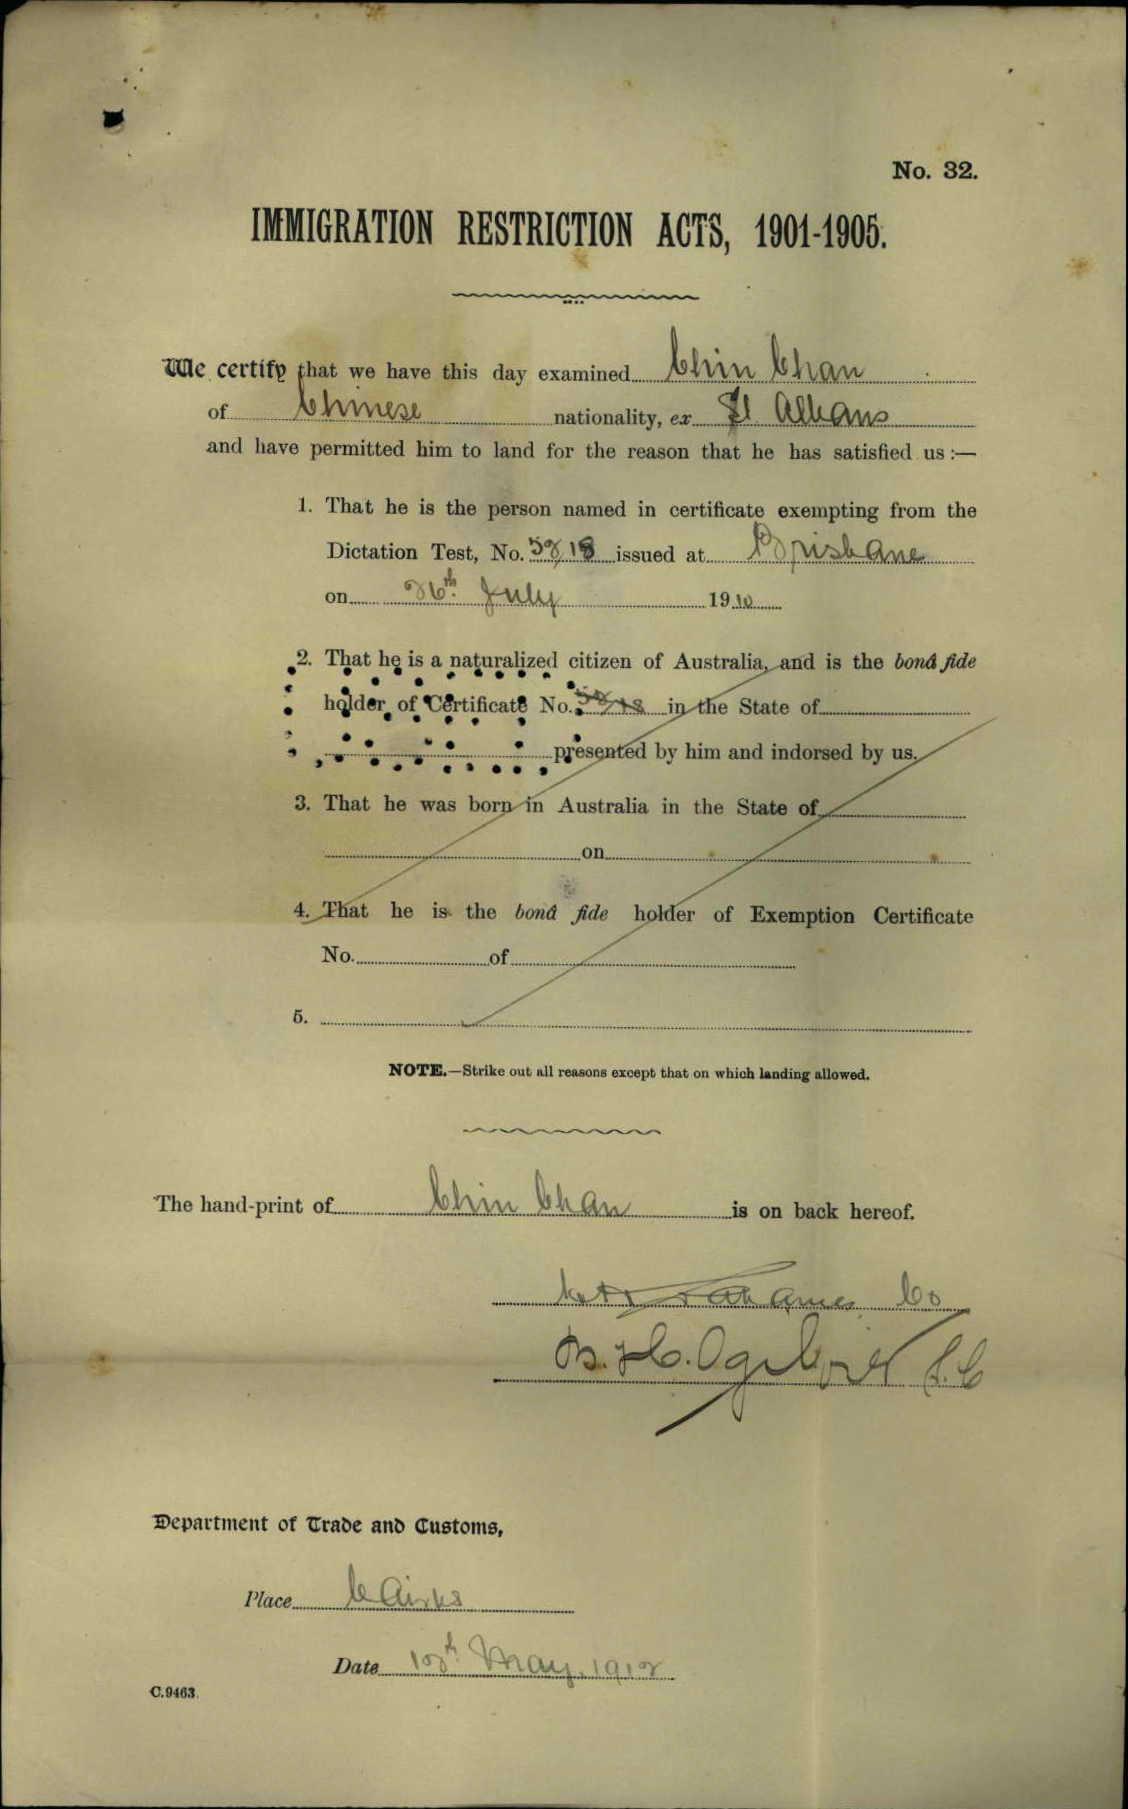 No. 32.
IMMIGRATION RESTRICTION ACTS, 1901-1905.
We certify that we have this day examined Chin Chan
of Chinese nationality, ex St Albans
and have permitted him to land for the reason that he has satisfied us :—
1. That he is the person named in certificate exempting from the
Dictation Test, No. 52/18 issued at Brisbane
on 26th July 1910
2. That he is a naturalized citizen of Australia, and is the bonâ fide
holder of Certificate No. 52/18 in the State of
presented by him and indorsed by us.
3. That he was born in Australia in the State of
on
4. That he is the bonâ fide holder of Exemption Certificate
No. of
5.
NOTE.—Strike out all reasons except that on which landing allowed.
The hand-print of Chin Chan is on back hereof.
Co
B. H. Ogilvie S.C
Department of Trade and Customs,
Place Cairns
Date May, 1912
C.9463.